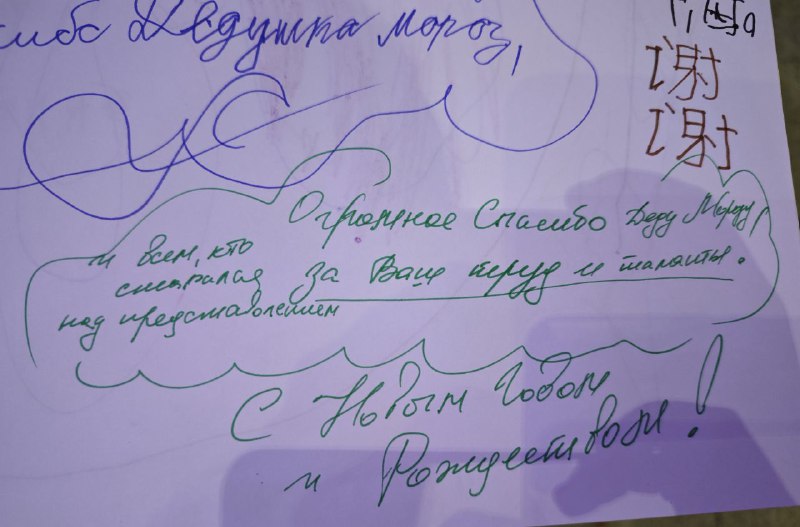 Дедушка мороз,
谢
谢
Огромное Спасибо Деду Морозу,
и всем, кто
старался
над представлением
за Ваш труд и таланты.
С Новым Годом
и Рождеством!